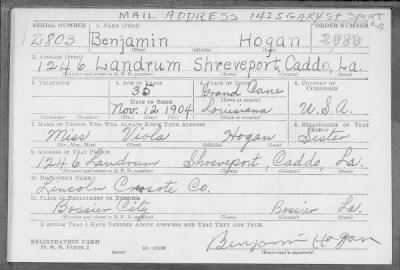 MAIL ADDRESS 1425 GARY ST SPORT LA
SERIAL NUMBER 1. NAME (Print) ORDER NUMBER
2803 Benjamin Hogan
(First) (Middle) (Last)
2. ADDRESS (Print)
1246 Landrum Shreveport, Caddo, La.
(Number and street or R. F. D. number) (Town) (County) (State)
3. TELEPHONE 4. AGE IN YEARS 5. PLACE OF BIRTH 6. COUNTRY OF CITIZENSHIP
35 Grand Cane
DATE OF BIRTH (Town or county)
Nov. 12, 1904 Louisiana U.S.A.
(Mo.) (Day) (Yr.) (State or country)
7. NAME OF PERSON WHO WILL ALWAYS KNOW YOUR ADDRESS 8. RELATIONSHIP OF THAT PERSON
Miss Viola Hogan Sister
(Mr., Mrs., Miss) (First) (Middle) (Last)
9. ADDRESS OF THAT PERSON
1246 Landrum Shreveport, Caddo, La.
(Number and street or R. F. D. number) (Town) (County) (State)
10. EMPLOYER'S NAME
Lincoln Creosote Co.
11. PLACE OF EMPLOYMENT OR BUSINESS
Bossier City Bossier La.
(Number and street or R. F. D. number) (Town) (County) (State)
I AFFIRM THAT I HAVE VERIFIED ABOVE ANSWERS AND THAT THEY ARE TRUE.
REGISTRATION CARD
D. S. S. Form 1 (over) Benjamin Hogan
(Registrant's signature)